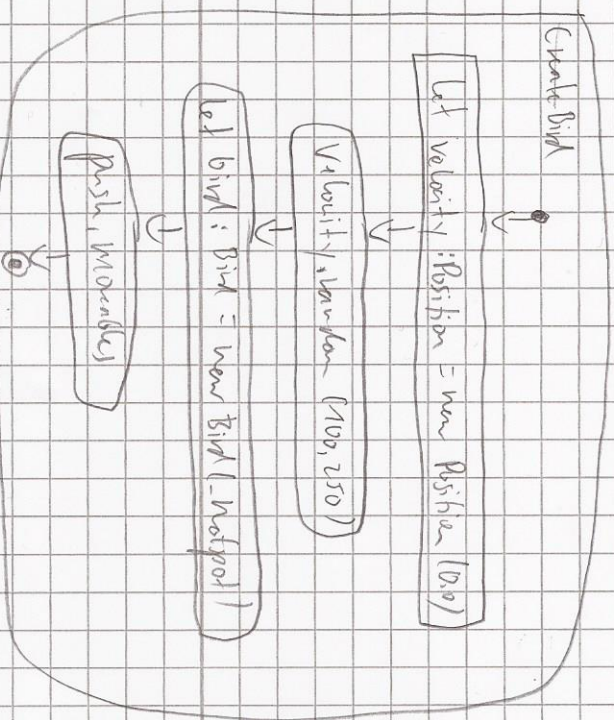 Create Bird
let velocity : Position = new Position (0,0)
velocity.random (100, 250)
let bird : Bird = new Bird (_hotspot)
push, moveables